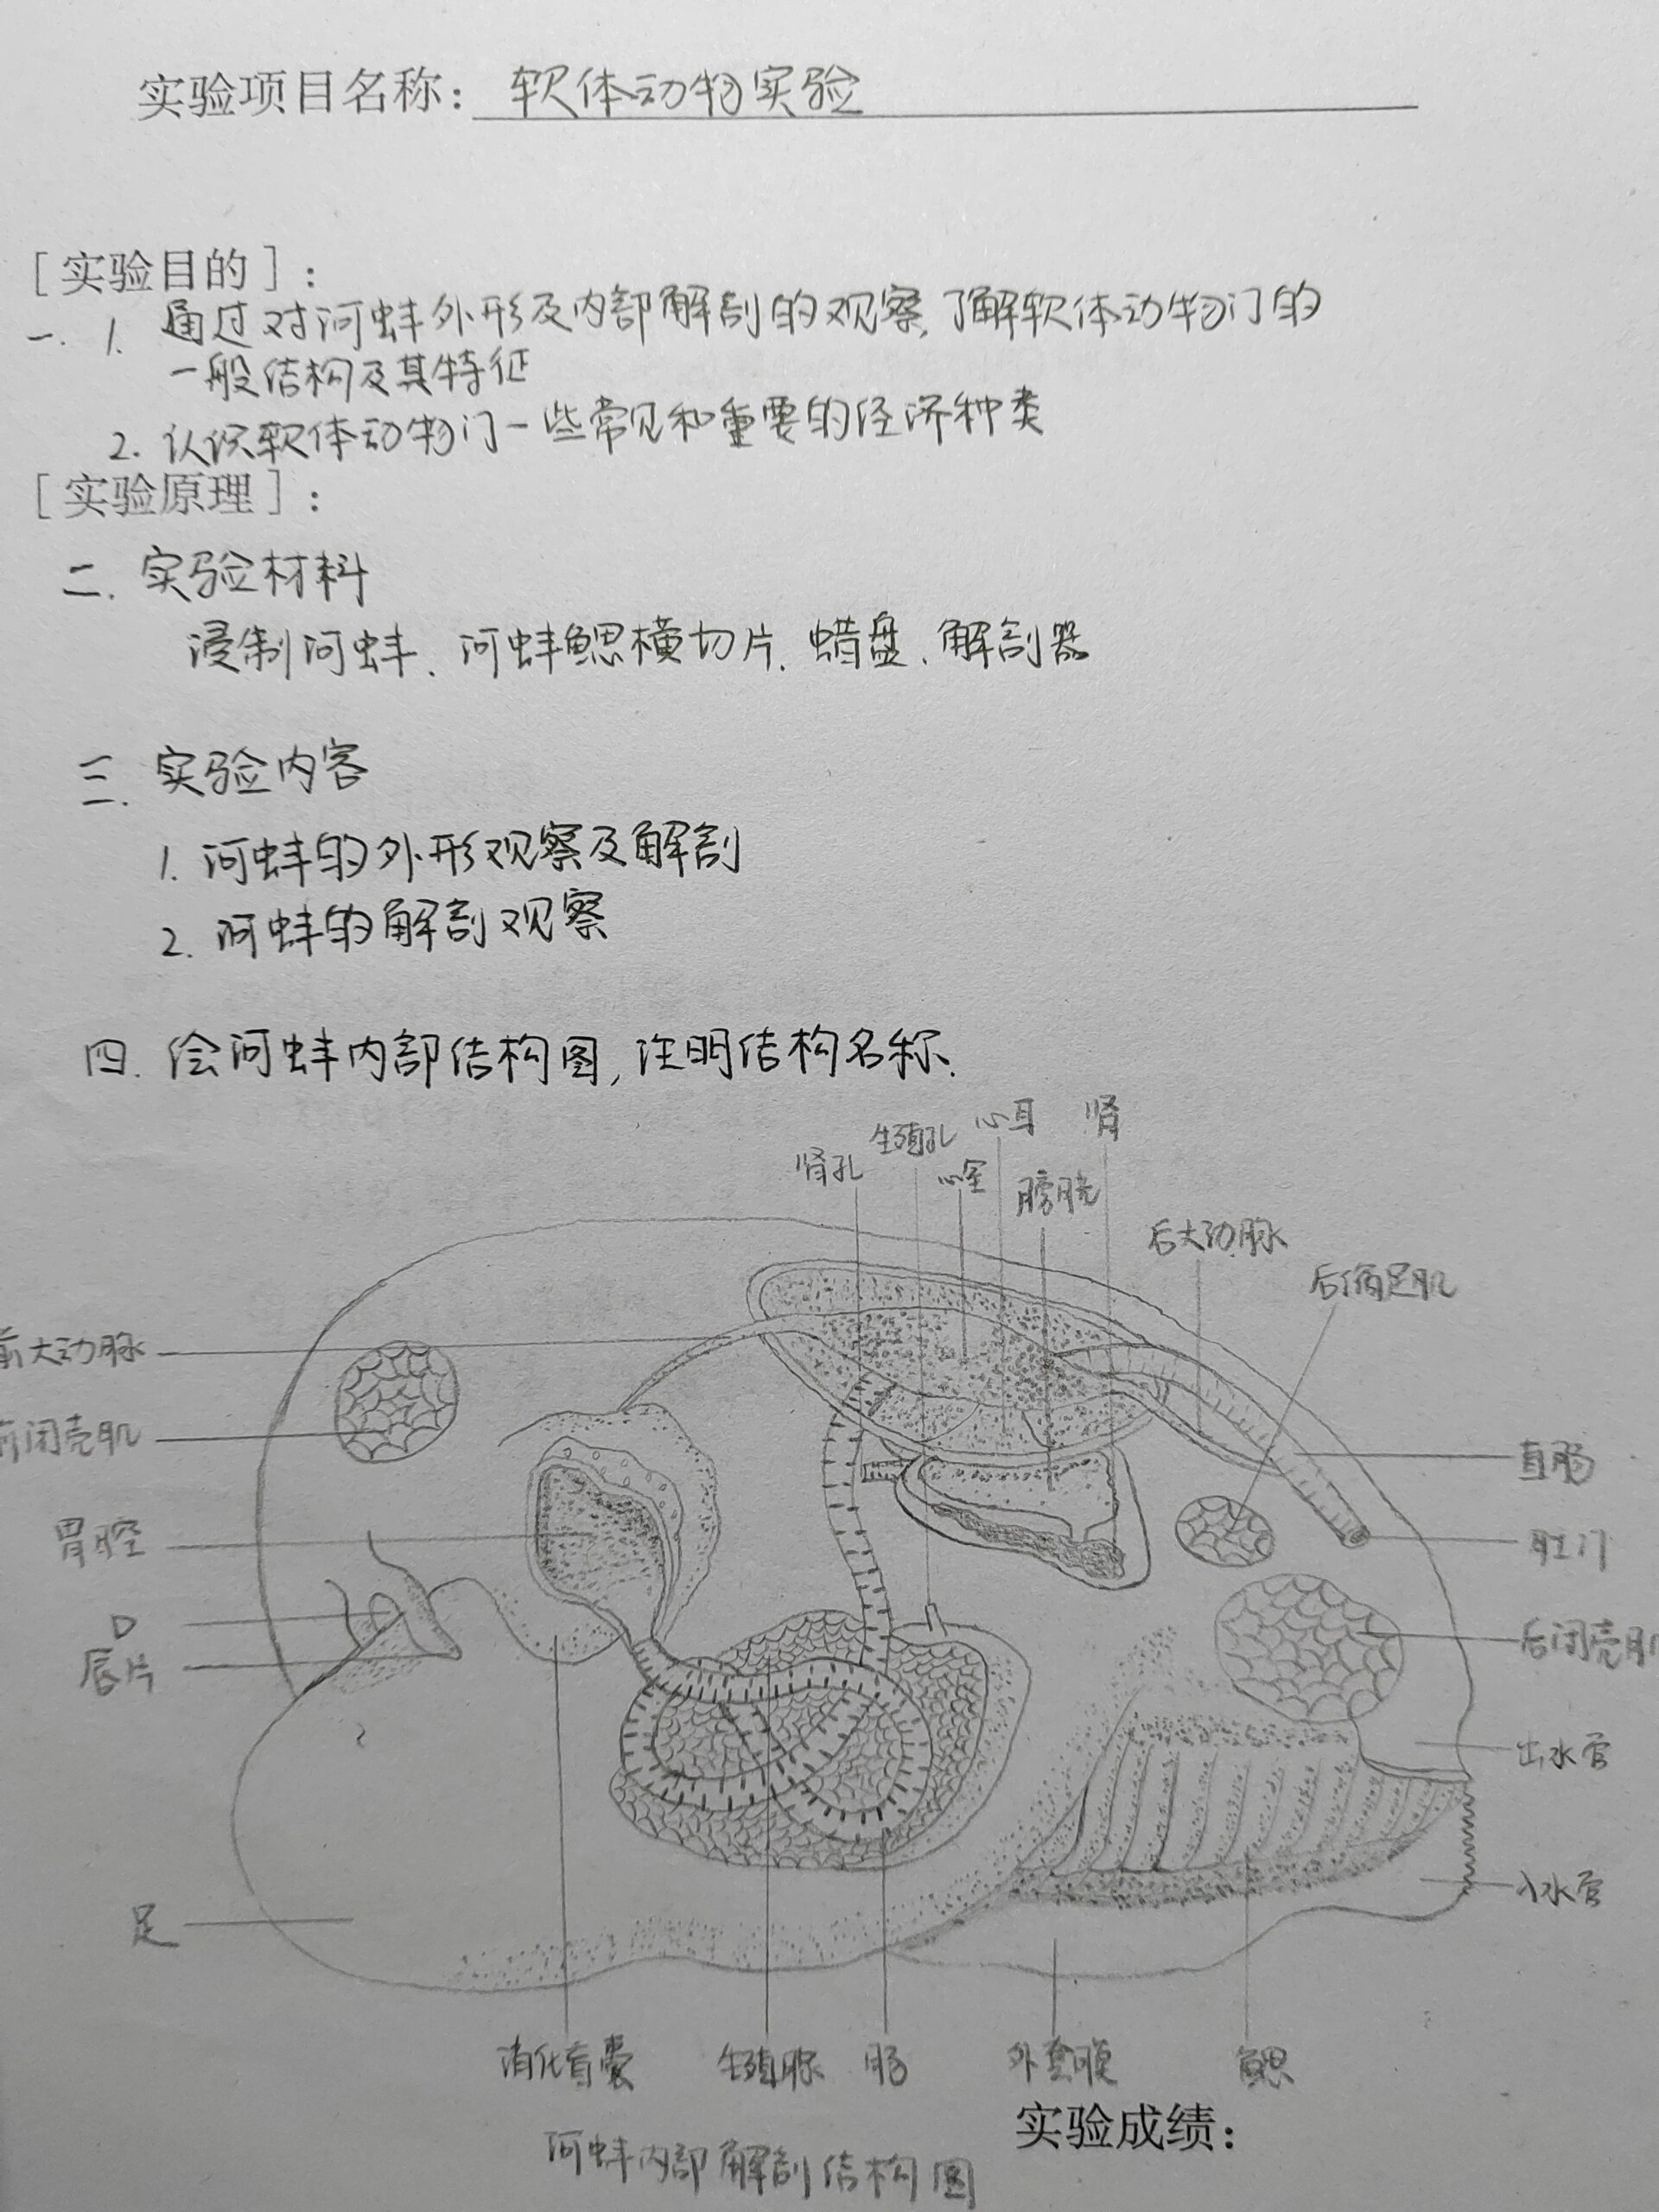 实验项目名称：软体动物实验
[实验目的]：
一. 1. 通过对河蚌外形及内部解剖的观察，了解软体动物门的
一般结构及其特征
2. 认识软体动物门一些常见和重要的经济种类
[实验原理]：
二. 实验材料
浸制河蚌、河蚌鳃横切片、蜡盘、解剖器
三. 实验内容
1. 河蚌的外形观察及解剖
2. 河蚌的解剖观察
四. 绘河蚌内部结构图，注明结构名称.
肾孔
生殖孔
心室
心耳
膀胱
肾
后大动脉
后缩足肌
前大动脉
前闭壳肌
胃腔
口
唇片
足
直肠
肛门
后闭壳肌
出水管
入水管
消化盲囊
生殖腺
肠
外套膜
鳃
实验成绩：
河蚌内部解剖结构图